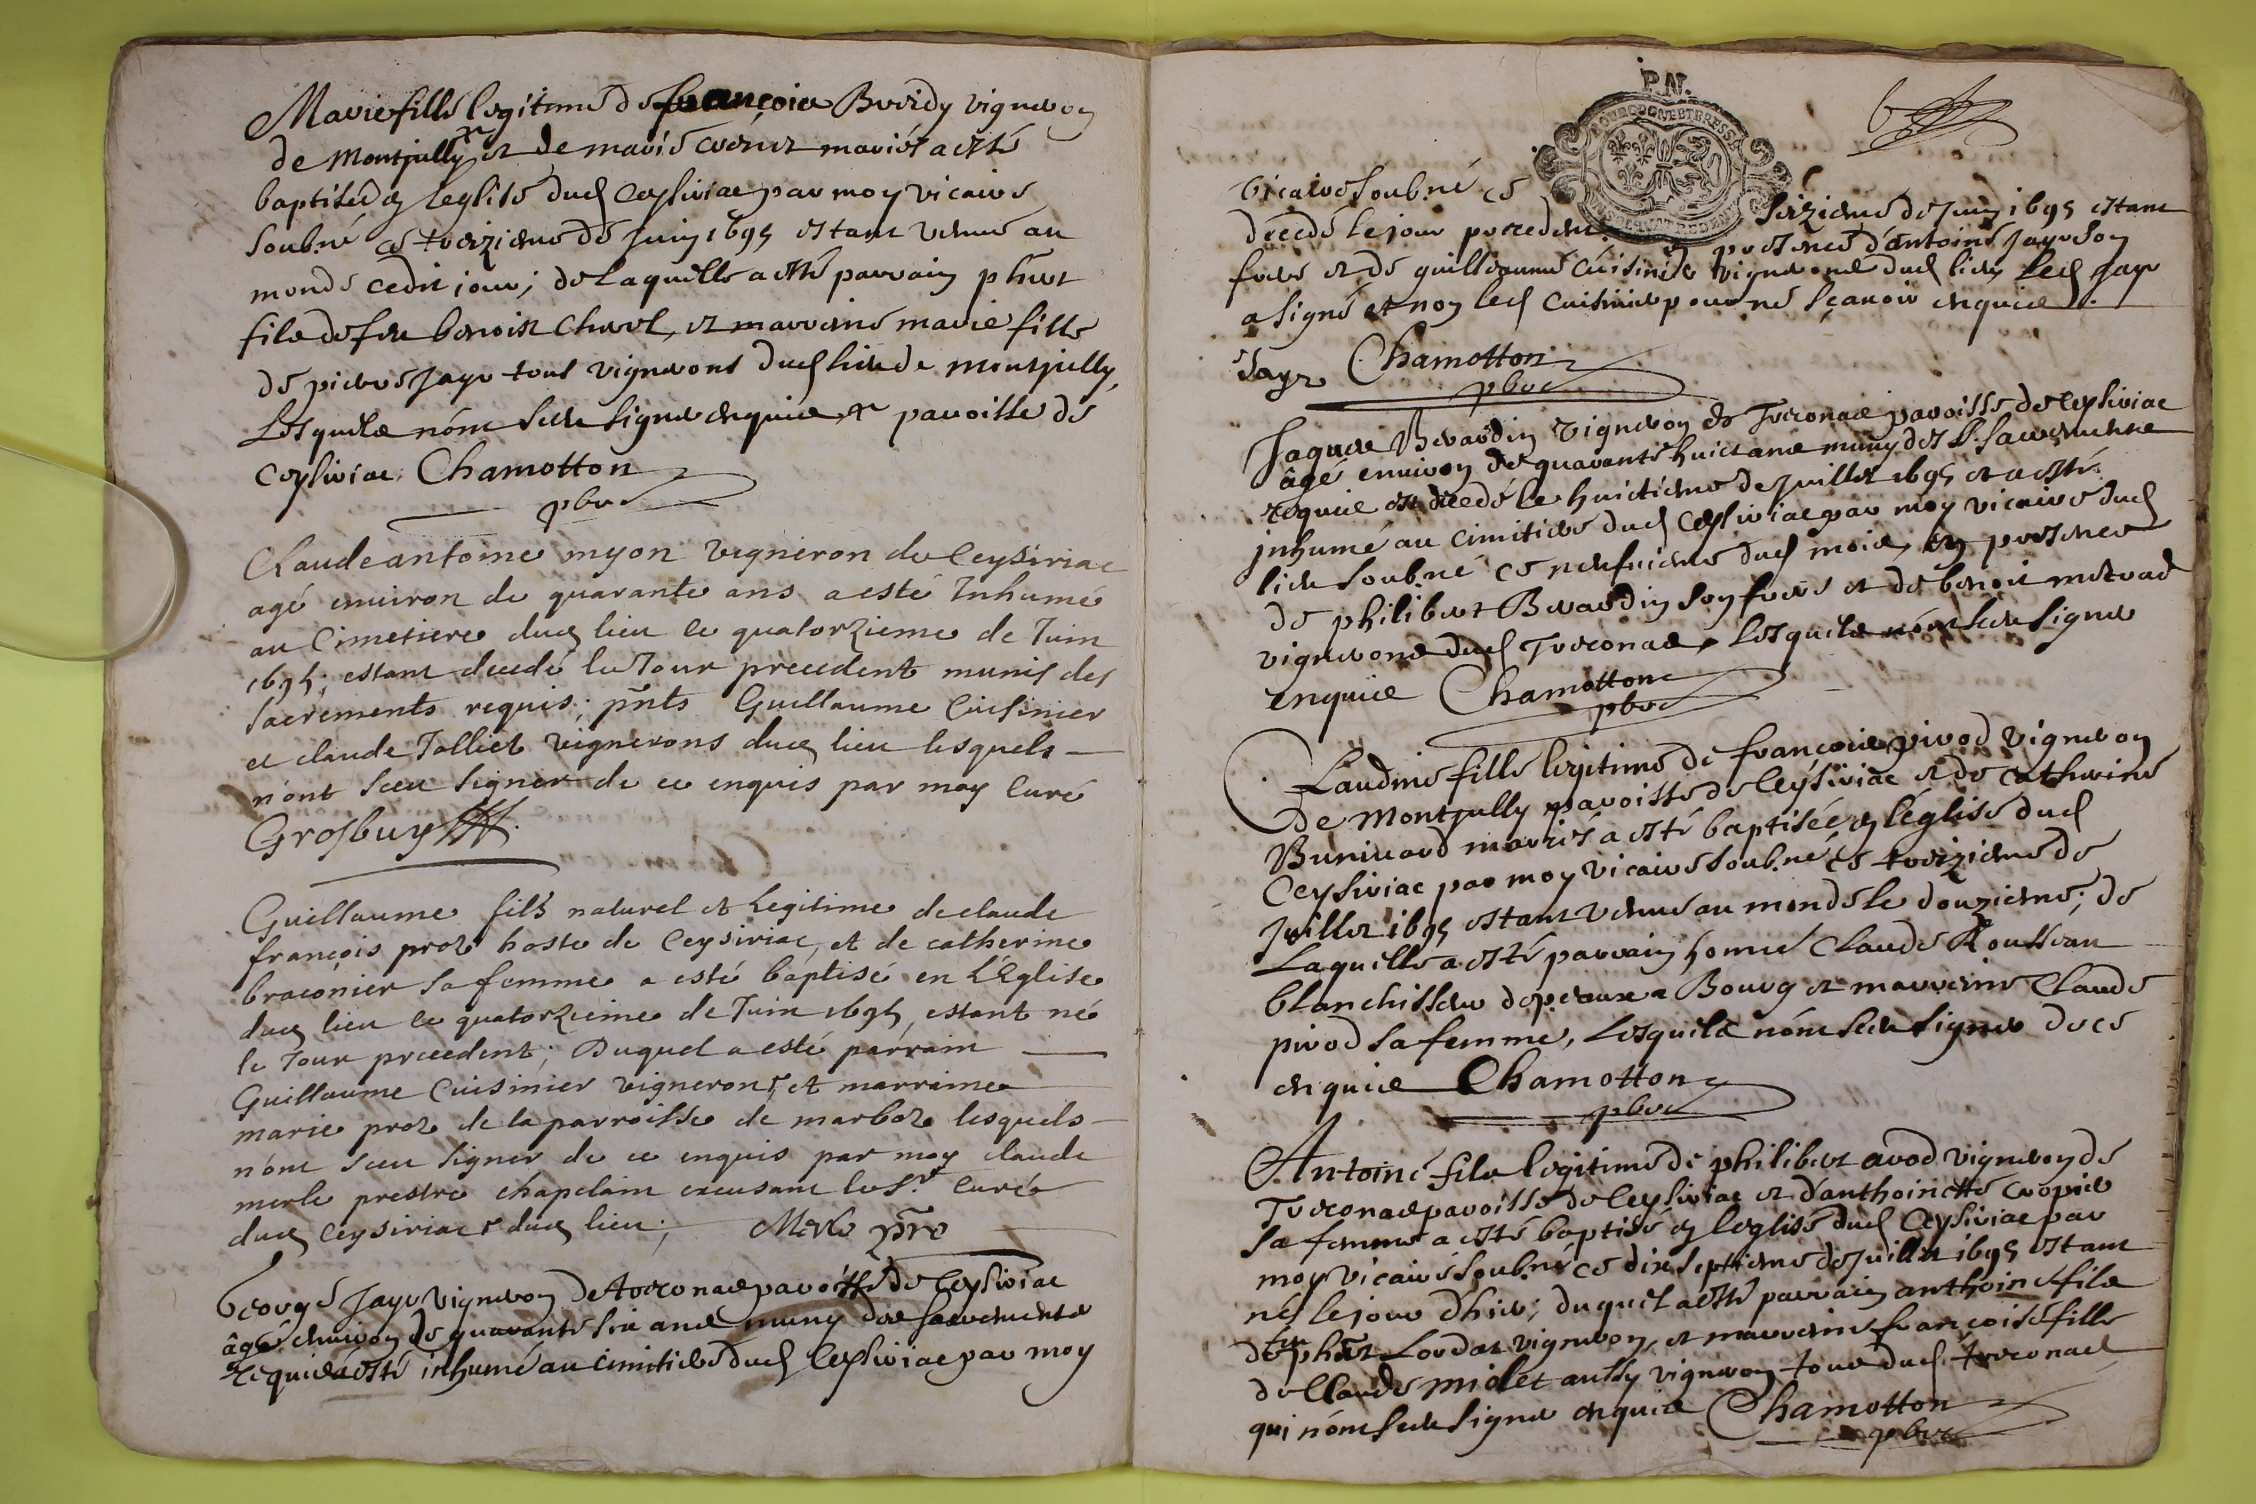 Marie fille legitime de françois Breidy vigneron
de Montjully et de marie mariés a esté
baptisée en leglise dud Ceysiriac par moy vicaire
soub.né ce treizieme de juin 1695 estant venue au
monde cedit jour; de laquelle a esté parrain phert
fils de feu benoist Chavel, et marreine marie fille
de pierre Jayr tous vignerons dud lieu de montjully,
Lesquels nont sceu signer enquis parroisse de
Ceysiriac. Chamotton
pbre
Claude antoine myon vigneron de Ceysiriac
agé environ de quarante ans a esté Inhumé
au Cimetiere dud lieu le quatorzieme de Juin
1695; estant decedé le Jour precedent munis des
sacrements requis; pñts Guillaume Cuisinier
et claude Jolliet vignerons dud lieu lesquels
n'ont sceu signer de ce enquis par moy Curé
Grosbuy
Guillaume fils naturel et Legitime de claude
françois proz hoste de Ceysiriac, et de catherine
braconier sa femme a esté baptisé en L'Eglise
dud lieu le quatorzieme de Juin 1695, estant né
le Jour precedent; Duquel a esté parrain
Guillaume Cuisinier vigneron, et marraine
marie proz de la parroisse de marboz lesquels
n'ont sceu signer de ce enquis par moy claude
merle prestre chapelain excusant le Sr Curé
dud Ceysiriac dud lieu; Merle pre
George Jayr vigneron de treconas parroisse de Ceysiriac
âgé environ de quarante six ans muny des sacrements
requis a esté inhumé au cimitiere dud Ceysiriac par moy
P.N.
6
vicaire soub.né ce seizieme de Juin 1695 estant
decedé le jour precedent. en presence d'antoine jayr son
frere et de guilleaume cuisinier vignerons dud lieu, led jayr
a signé et non led cuisinier pour ne sçavoir enquis.
Jayr Chamotton
pbre
Jaques Berardin vigneron de Treconas parroisse de Ceysiriac
âgé environ de quarante huict ans muny des S. sacrements
requis est decedé le huictieme de juillet 1695 et a esté
jnhumé au cimitiere dud Ceysiriac par moy vicaire dud
lieu soub.né ce neufuieme dud mois, en presence
de philibert Berardin son frere et de benoit
vignerons dud Treconas, Lesquels nont sceu signer
enquis Chamotton
pbre
Claudine fille legitime de françois pirod vigneron
de Montjully parroisse de Ceysiriac et de catherine
Buniuard mariés a esté baptisée en léglise dud
Ceysiriac par moy vicaire soub.né ce treizieme de
Juillet 1695 estant venue au monde le douzieme; de
Laquelle a esté parrain honné Claude Rousseau
blanchisseur de peaux a Bourg et marreine Claude
pirod sa femme, Lesquels nont sceu signer de ce
enquis Chamotton
pbre
Antoine fils legitime de philibert avod vigneron de
Treconas parroisse de Ceysiriac et d'anthoinette cropier
sa femme a esté baptisé en leglise dud Ceysiriac par
moy vicaire soub.né ce dix septieme de juillet 1695 estant
né le jour d'hier; duquel a esté parrain anthoine fils
de phert Lordat vigneron, et marreine françoise fille
de Claude miolet aussy vigneron tous dud treconas
qui nont sceu signer enquis Chamotton
pbre